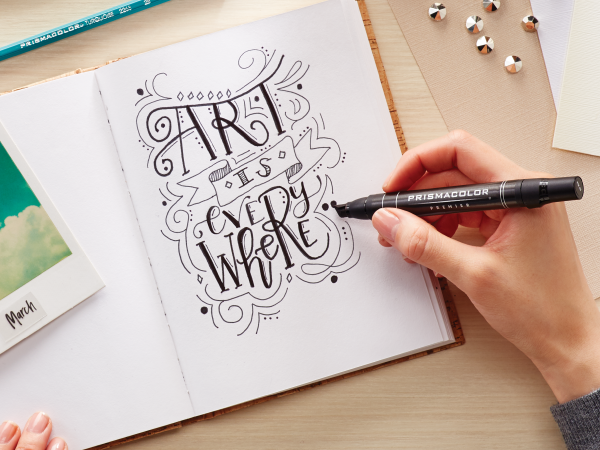 PRISMACOLOR TURQUOISE
ART
IS
everY
WheRE
PRISMACOLOR
PREMIER
March